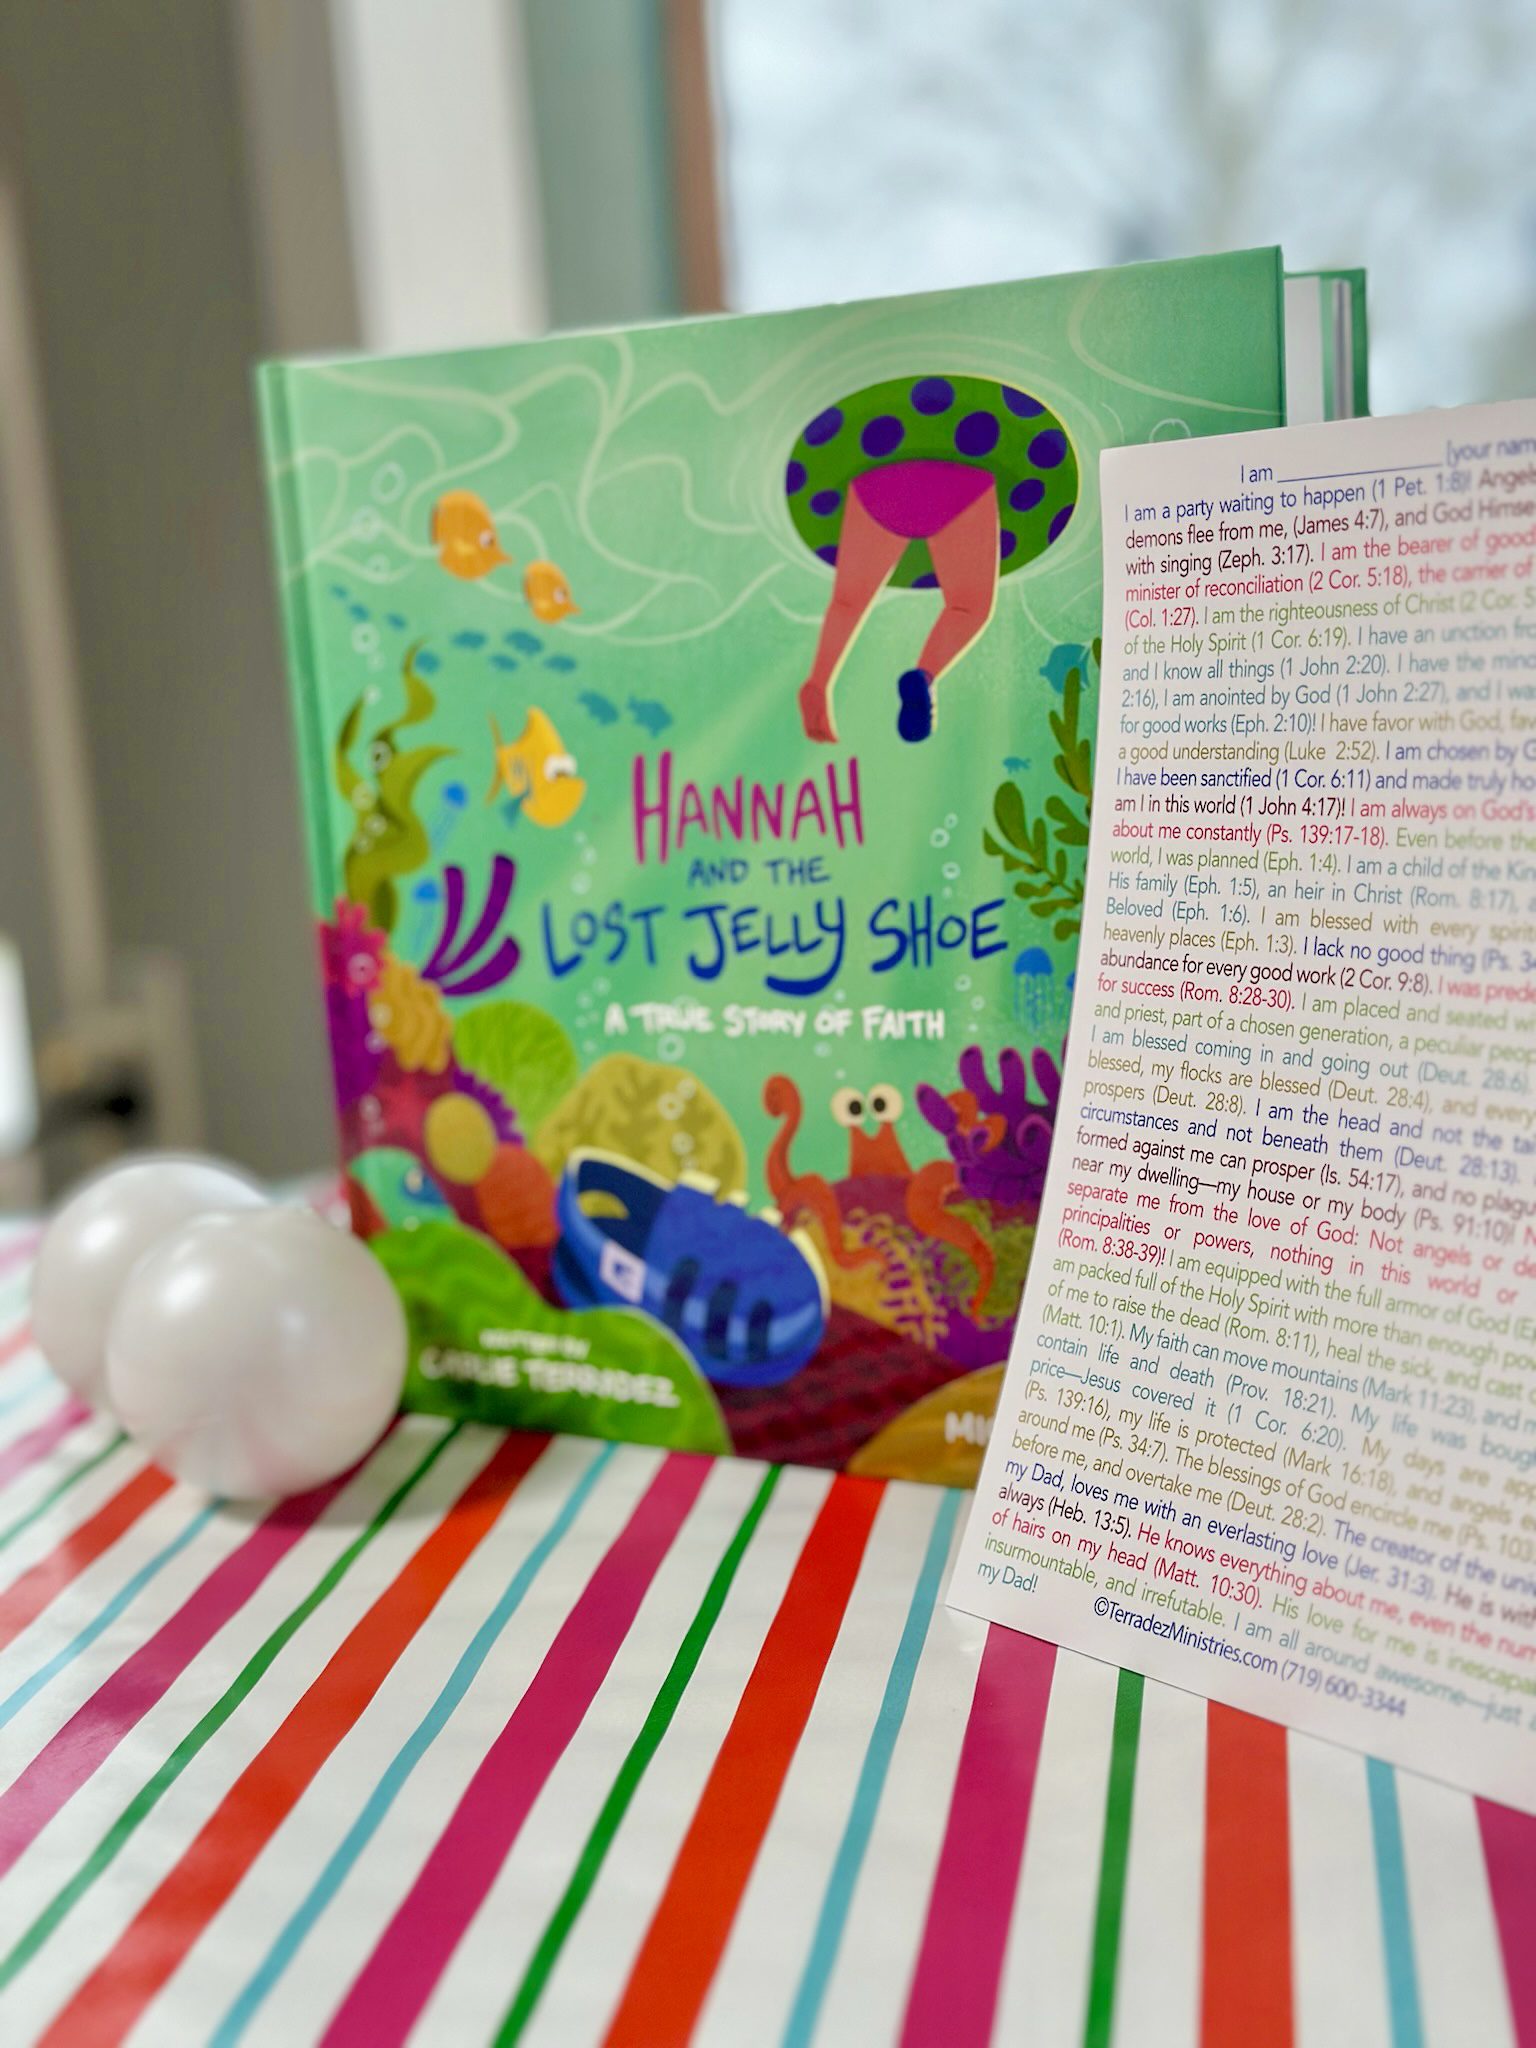 HANNAH
AND THE
LOST JELLY SHOE
A TRUE STORY OF FAITH
WRITTEN BY
CARLIE TERRADEZ
I am _______________ [your nam
I am a party waiting to happen (1 Pet. 1:8)! Angels
demons flee from me, (James 4:7), and God Himse
with singing (Zeph. 3:17). I am the bearer of good
minister of reconciliation (2 Cor. 5:18), the carrier of
(Col. 1:27). I am the righteousness of Christ (2 Cor. 5
of the Holy Spirit (1 Cor. 6:19). I have an unction fro
and I know all things (1 John 2:20). I have the mind
2:16), I am anointed by God (1 John 2:27), and I wa
for good works (Eph. 2:10)! I have favor with God, fav
a good understanding (Luke 2:52). I am chosen by G
I have been sanctified (1 Cor. 6:11) and made truly ho
am I in this world (1 John 4:17)! I am always on God's
about me constantly (Ps. 139:17-18). Even before the
world, I was planned (Eph. 1:4). I am a child of the Kin
His family (Eph. 1:5), an heir in Christ (Rom. 8:17), a
Beloved (Eph. 1:6). I am blessed with every spirit
heavenly places (Eph. 1:3). I lack no good thing (Ps. 34
abundance for every good work (2 Cor. 9:8). I was prede
for success (Rom. 8:28-30). I am placed and seated w
and priest, part of a chosen generation, a peculiar peop
I am blessed coming in and going out (Deut. 28:6)
blessed, my flocks are blessed (Deut. 28:4), and every
prospers (Deut. 28:8). I am the head and not the ta
circumstances and not beneath them (Deut. 28:13).
formed against me can prosper (Is. 54:17), and no plagu
near my dwelling—my house or my body (Ps. 91:10)! N
separate me from the love of God: Not angels or de
principalities or powers, nothing in this world or
(Rom. 8:38-39)! I am equipped with the full armor of God (E
am packed full of the Holy Spirit with more than enough po
of me to raise the dead (Rom. 8:11), heal the sick, and cast
(Matt. 10:1). My faith can move mountains (Mark 11:23), and m
contain life and death (Prov. 18:21). My life was bough
price—Jesus covered it (1 Cor. 6:20). My days are app
(Ps. 139:16), my life is protected (Mark 16:18), and angels e
around me (Ps. 34:7). The blessings of God encircle me (Ps. 103
before me, and overtake me (Deut. 28:2). The creator of the uni
my Dad, loves me with an everlasting love (Jer. 31:3). He is with
always (Heb. 13:5). He knows everything about me, even the num
of hairs on my head (Matt. 10:30). His love for me is inescapa
insurmountable, and irrefutable. I am all around awesome—just
my Dad!
©TerradezMinistries.com (719) 600-3344